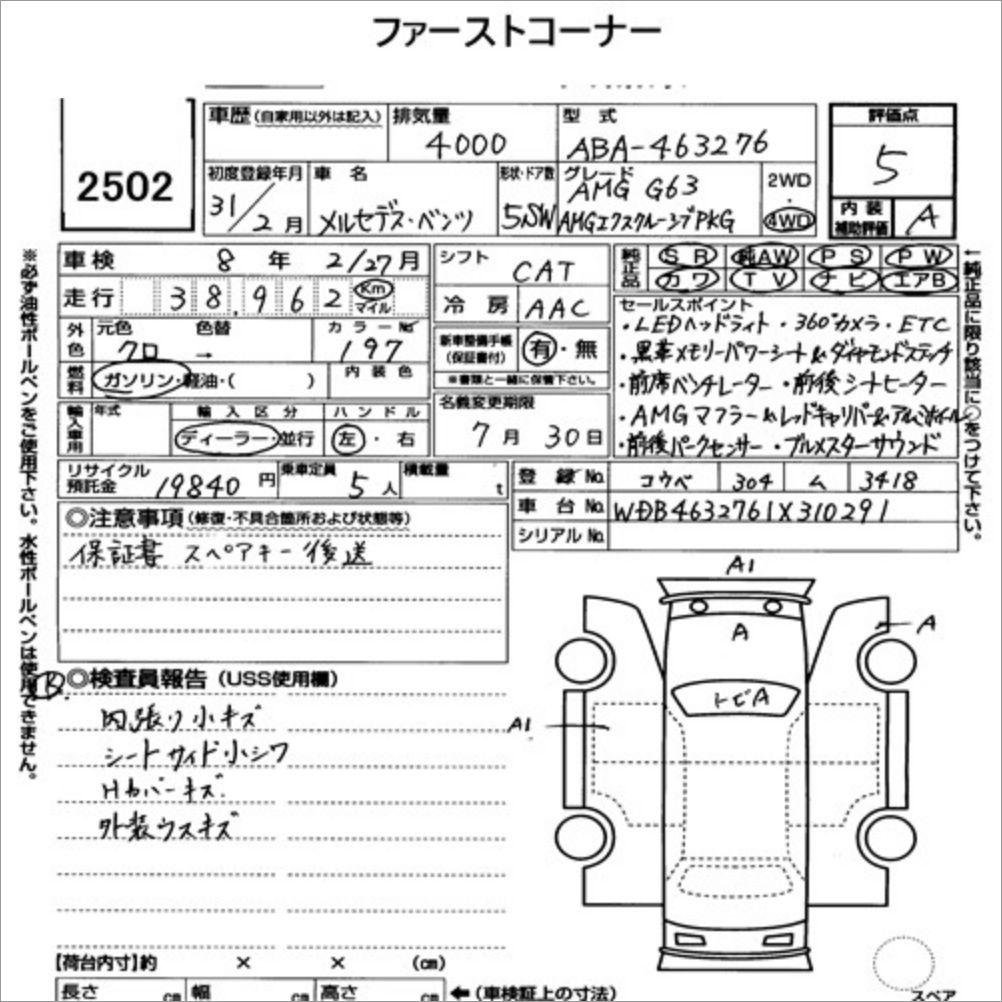 ファーストコーナー
2502
車歴(自家用以外は記入)
排気量
4000
型式
ABA-463276
評価点
5
初度登録年月
31/2月
車名
メルセデス・ベンツ
形状・ドア数
5SW
グレード
AMG G63
AMGエクスクルーシブPKG
2WD
・
4WD
内装
補助評価
A
※必ず油性ボールペンをご使用下さい。水性ボールペンは使用できません。
車検 8年 2/27月
走行 38,962 Km
マイル
シフト CAT
冷房 AAC
純正品
SR 純AW PS PW
カワ TV ナビ エアB
←純正品に限り該当に○をつけて下さい。
外色
元色 色替
クロ →
カラーNo.
197
燃料
ガソリン・軽油・( )
内装色
新車整備手帳
(保証書付)
有・無
※書類と一緒に保管下さい。
セールスポイント
・LEDヘッドライト ・360°カメラ ・ETC
・黒革メモリーパワーシート&ダイヤモンドステッチ
・前席ベンチレーター ・前後シートヒーター
・AMGマフラー&レッドキャリパー&アルミホイール
・前後パークセンサー ・ブルメスターサウンド
輸入車用
年式
輸入区分
ディーラー・並行
ハンドル
左・右
名義変更期限
7月30日
リサイクル
預託金
19840円
乗車定員
5人
積載量
t
登録No. コウベ 304 ム 3418
車台No. WDB4632761X310291
シリアルNo.
◎注意事項(修復・不具合箇所および状態等)
保証書 スペアキー後送
◎検査員報告(USS使用欄)
内張り小キズ
シートサイド小シワ
Hカバーキズ
外装ウスキズ
A1
A
A
トビA
A1
【荷台内寸】約 × × (cm)
長さ cm 幅 cm 高さ cm ←(車検証上の寸法)
スペア